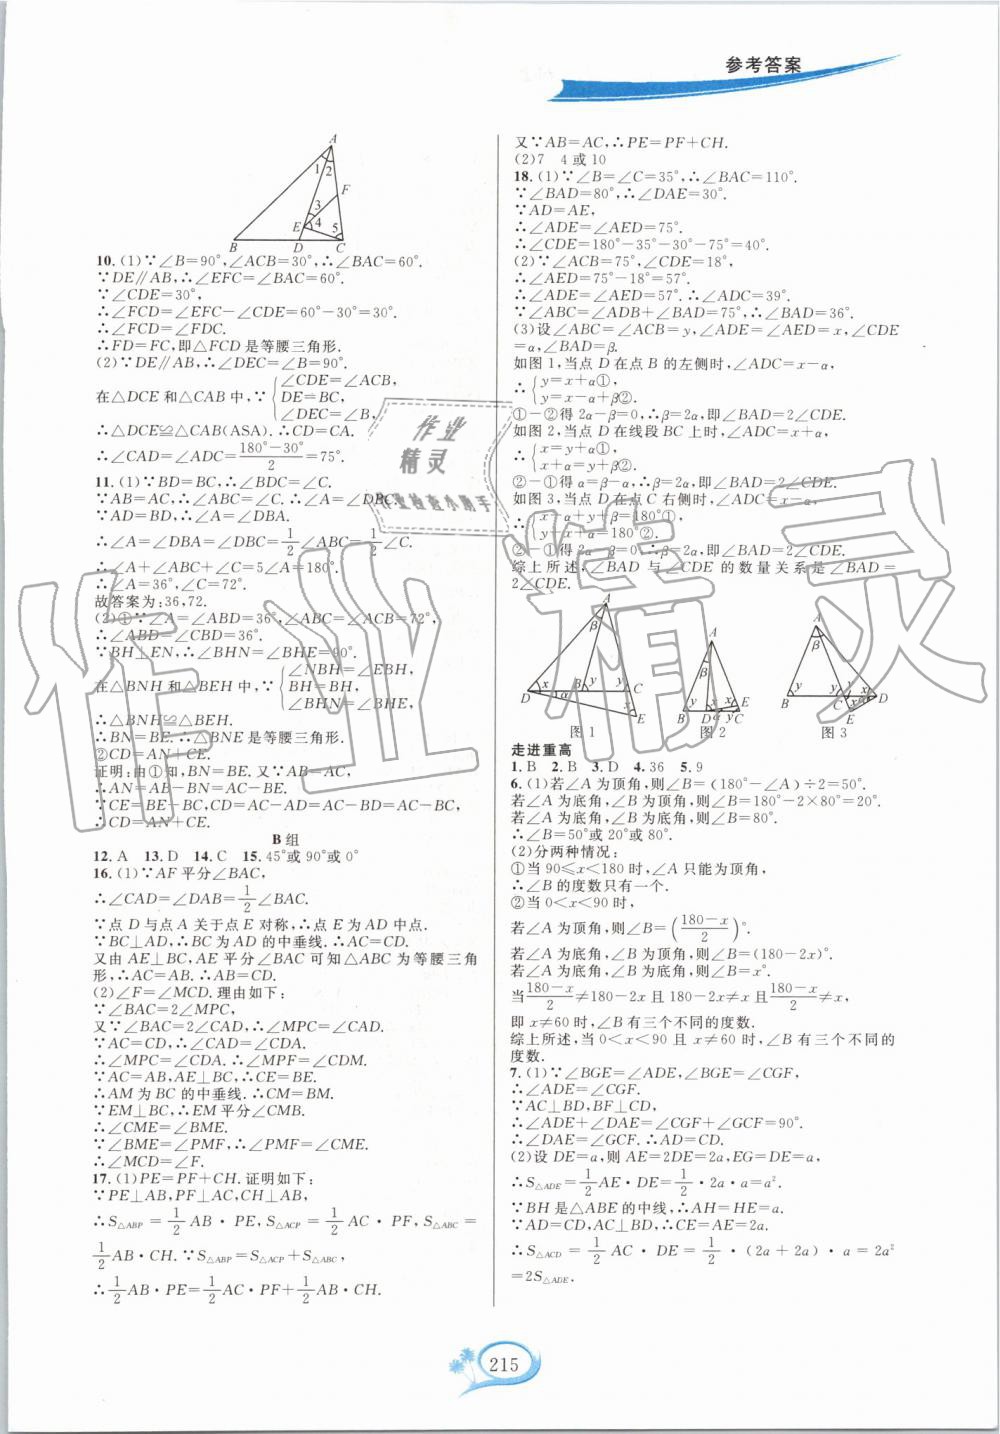 参考答案
10. (1)∵∠B=90°,∠ACB=30°,∴∠BAC=60°.
∵DE∥AB,∴∠EFC=∠BAC=60°.
∵∠CDE=30°,
∴∠FCD=∠EFC-∠CDE=60°-30°=30°.
∴∠FCD=∠FDC.
∴FD=FC,即△FCD是等腰三角形.
(2)∵DE∥AB,∴∠DEC=∠B=90°.
在△DCE和△CAB中,∵{∠CDE=∠ACB, DE=BC, ∠DEC=∠B,
∴△DCE≌△CAB(ASA).∴CD=CA.
∴∠CAD=∠ADC=(180°-30°)/2=75°.
11. (1)∵BD=BC,∴∠BDC=∠C.
∵AB=AC,∴∠ABC=∠C.∴∠A=∠DBC.
∵AD=BD,∴∠A=∠DBA.
∴∠A=∠DBA=∠DBC=1/2∠ABC=1/2∠C.
∴∠A+∠ABC+∠C=5∠A=180°.
∴∠A=36°,∠C=72°.
故答案为:36,72.
(2)①∵∠A=∠ABD=36°,∠ABC=∠ACB=72°,
∴∠ABD=∠CBD=36°.
∵BH⊥EN,∴∠BHN=∠BHE=90°.
在△BNH和△BEH中,∵{∠NBH=∠EBH, BH=BH, ∠BHN=∠BHE,
∴△BNH≌△BEH.
∴BN=BE.∴△BNE是等腰三角形.
②CD=AN+CE.
证明:由①知,BN=BE.又∵AB=AC,
∴AN=AB-BN=AC-BE.
∵CE=BE-BC,CD=AC-AD=AC-BD=AC-BC,
∴CD=AN+CE.
B组
12. A 13. D 14. C 15. 45°或90°或0°
16. (1)∵AF平分∠BAC,
∴∠CAD=∠DAB=1/2∠BAC.
∵点D与点A关于点E对称,∴点E为AD中点.
∵BC⊥AD,∴BC为AD的中垂线.∴AC=CD.
又由AE⊥BC,AE平分∠BAC可知△ABC为等腰三角
形,∴AC=AB.∴AB=CD.
(2)∠F=∠MCD.理由如下:
∵∠BAC=2∠MPC,
又∵∠BAC=2∠CAD,∴∠MPC=∠CAD.
∵AC=CD,∴∠CAD=∠CDA.
∴∠MPC=∠CDA.∴∠MPF=∠CDM.
∵AC=AB,AE⊥BC,∴CE=BE.
∴AM为BC的中垂线.∴CM=BM.
∵EM⊥BC,∴EM平分∠CMB.
∴∠CME=∠BME.
∵∠BME=∠PMF,∴∠PMF=∠CME.
∴∠MCD=∠F.
17. (1)PE=PF+CH.证明如下:
∵PE⊥AB,PF⊥AC,CH⊥AB,
∴S△ABP=1/2 AB·PE,S△ACP=1/2 AC·PF,S△ABC=
1/2 AB·CH.∵S△ABP=S△ACP+S△ABC,
∴1/2 AB·PE=1/2 AC·PF+1/2 AB·CH.
又∵AB=AC,∴PE=PF+CH.
(2)7 4或10
18. (1)∵∠B=∠C=35°,∴∠BAC=110°.
∵∠BAD=80°,∴∠DAE=30°.
∵AD=AE,
∴∠ADE=∠AED=75°.
∴∠CDE=180°-35°-30°-75°=40°.
(2)∵∠ACB=75°,∠CDE=18°,
∴∠AED=75°-18°=57°.
∴∠ADE=∠AED=57°.∴∠ADC=39°.
∵∠ABC=∠ADB+∠BAD=75°,∴∠BAD=36°.
(3)设∠ABC=∠ACB=y,∠ADE=∠AED=x,∠CDE
=α,∠BAD=β.
如图1,当点D在点B的左侧时,∠ADC=x-α,
∴{y=x+α①, y=x-α+β②.
①-②得2α-β=0,∴β=2α,即∠BAD=2∠CDE.
如图2,当点D在线段BC上时,∠ADC=x+α,
∴{x=y+α①, x+α=y+β②.
②-①得α=β-α,∴β=2α,即∠BAD=2∠CDE.
如图3,当点D在点C右侧时,∠ADC=x-α,
∴{x-α+y+β=180°①, x+y+α=180°②.
②-①得2α-β=0,∴β=2α,即∠BAD=2∠CDE.
综上所述,∠BAD与∠CDE的数量关系是∠BAD=
2∠CDE.
图1 图2 图3
走进重高
1. B 2. B 3. D 4. 36 5. 9
6. (1)若∠A为顶角,则∠B=(180°-∠A)÷2=50°.
若∠A为底角,∠B为顶角,则∠B=180°-2×80°=20°.
若∠A为底角,∠B为底角,则∠B=80°.
∴∠B=50°或20°或80°.
(2)分两种情况:
①当90≤x<180时,∠A只能为顶角,
∴∠B的度数只有一个.
②当0<x<90时,
若∠A为顶角,则∠B=((180-x)/2)°.
若∠A为底角,∠B为顶角,则∠B=(180-2x)°.
若∠A为底角,∠B为底角,则∠B=x°.
当(180-x)/2≠180-2x且180-2x≠x且(180-x)/2≠x,
即x≠60时,∠B有三个不同的度数.
综上所述,当0<x<90且x≠60时,∠B有三个不同的
度数.
7. (1)∵∠BGE=∠ADE,∠BGE=∠CGF,
∴∠ADE=∠CGF.
∵AC⊥BD,BF⊥CD,
∴∠ADE+∠DAE=∠CGF+∠GCF=90°.
∴∠DAE=∠GCF.∴AD=CD.
(2)设DE=a,则AE=2DE=2a,EG=DE=a.
∴S△ADE=1/2 AE·DE=1/2·2a·a=a².
∵BH是△ABE的中线,∴AH=HE=a.
∵AD=CD,AC⊥BD,∴CE=AE=2a.
∴S△ACD=1/2 AC·DE=1/2·(2a+2a)·a=2a²
=2S△ADE,
215
作业精灵